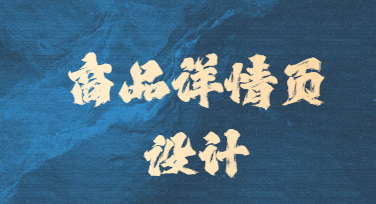 商品详情页
设计